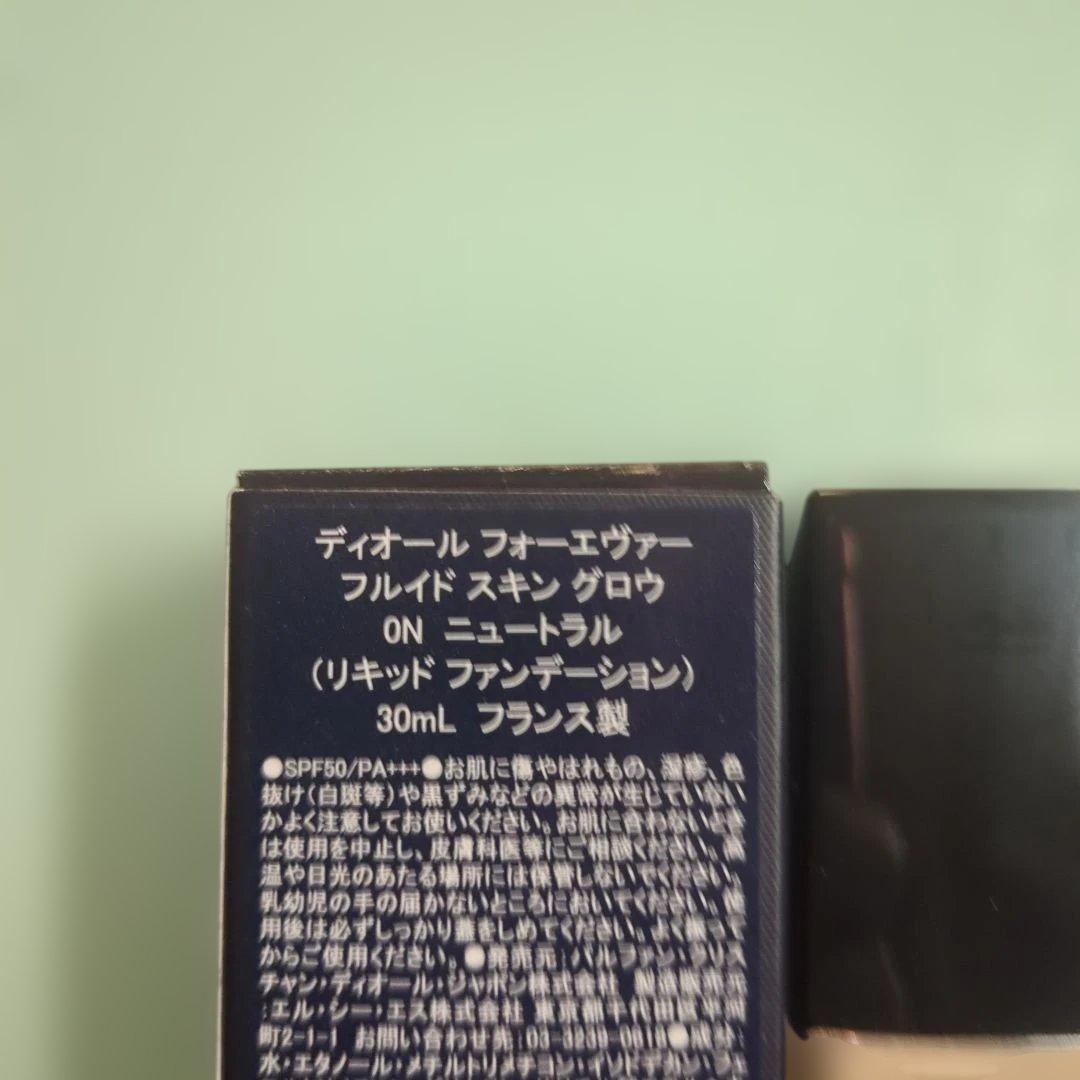 ディオール フォーエヴァー
フルイド スキン グロウ
0N ニュートラル
(リキッド ファンデーション)
30mL フランス製
●SPF50/PA+++●お肌に傷やはれもの、湿疹、色
抜け(白斑等)や黒ずみなどの異常が生じていない
かよく注意してお使いください。お肌に合わないとき
は使用を中止し、皮膚科医等にご相談ください。高
温や日光のあたる場所には保管しないでください。
乳幼児の手の届かないところにおいてください。使
用後は必ずしっかり蓋をしめてください。よく振って
からご使用ください。●発売元:パルファン・クリス
チャン・ディオール・ジャポン株式会社 製造販売元
:エル・シー・エス株式会社 東京都千代田区平河
町2-1-1 お問い合わせ先:03-3239-
水・エタノール・メチルトリメチコン・イソドデカン・